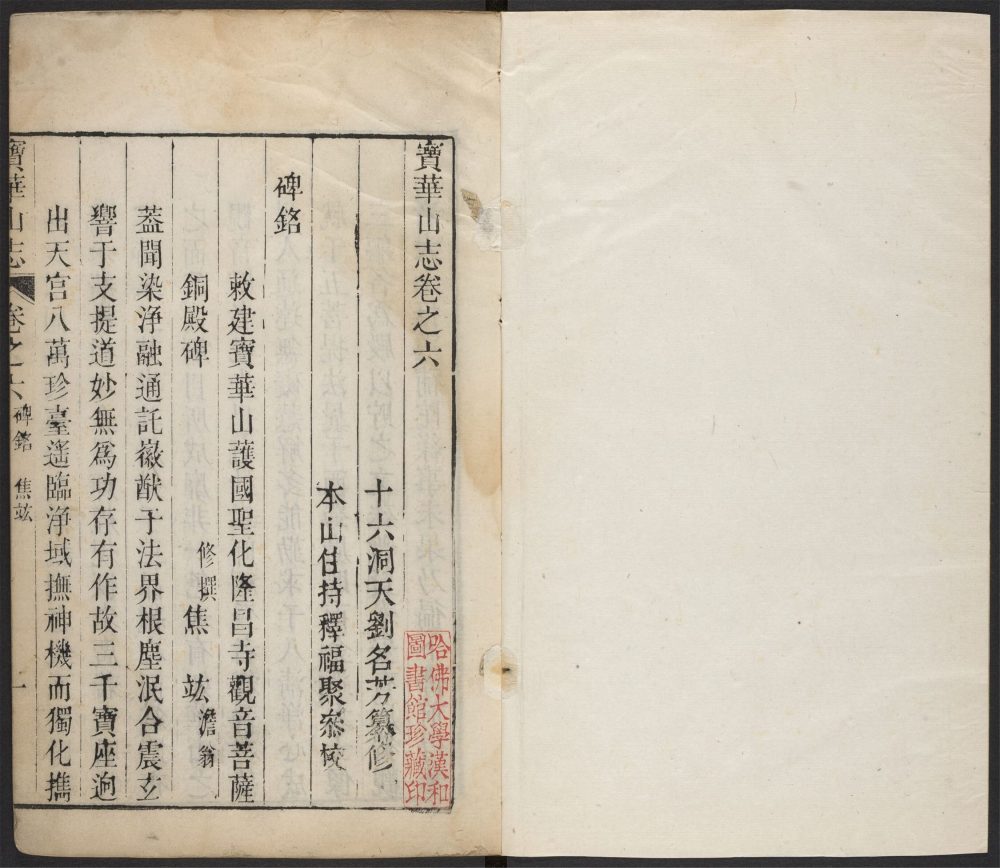 寶華山志卷之六
十六洞天劉名芳纂修
本山住持釋福聚叅校
碑銘
敕建寶華山護國聖化隆昌寺觀音菩薩
銅殿碑
修撰焦竑澹翁
葢聞染浄融通託徽猷于法界根塵泯合震玄
響于支提道妙無爲功存有作故三千寶座逈
出天宫八萬珍臺遥臨浄域撫神機而獨化擕
寶華山志
卷之六
碑銘 焦竑
一
哈佛大學漢和
圖書館珍藏印